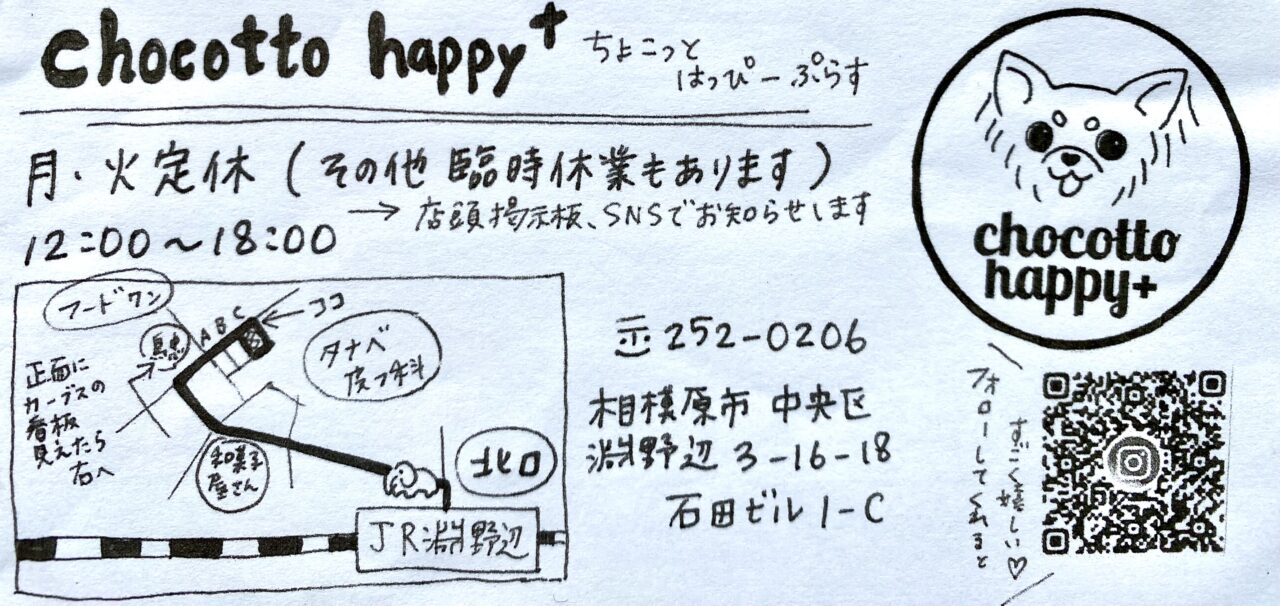 chocotto happy+
ちょこっと
はっぴーぷらす
月・火定休(その他 臨時休業もあります)
→ 店頭掲示板、SNSでお知らせします
12:00〜18:00
フードワン
A B C
ココ
タナベ
皮フ科
正面に
カーブスの
看板
見えたら
右へ
和菓子
屋さん
北口
JR淵野辺
〒252-0206
相模原市 中央区
淵野辺 3-16-18
石田ビル 1-C
chocotto
happy+
フォローしてくれると
すごく嬉しい♡